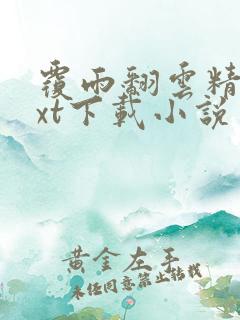 覆雨翻雲精
xt下載小說
黃金左手
未经同意禁止转载